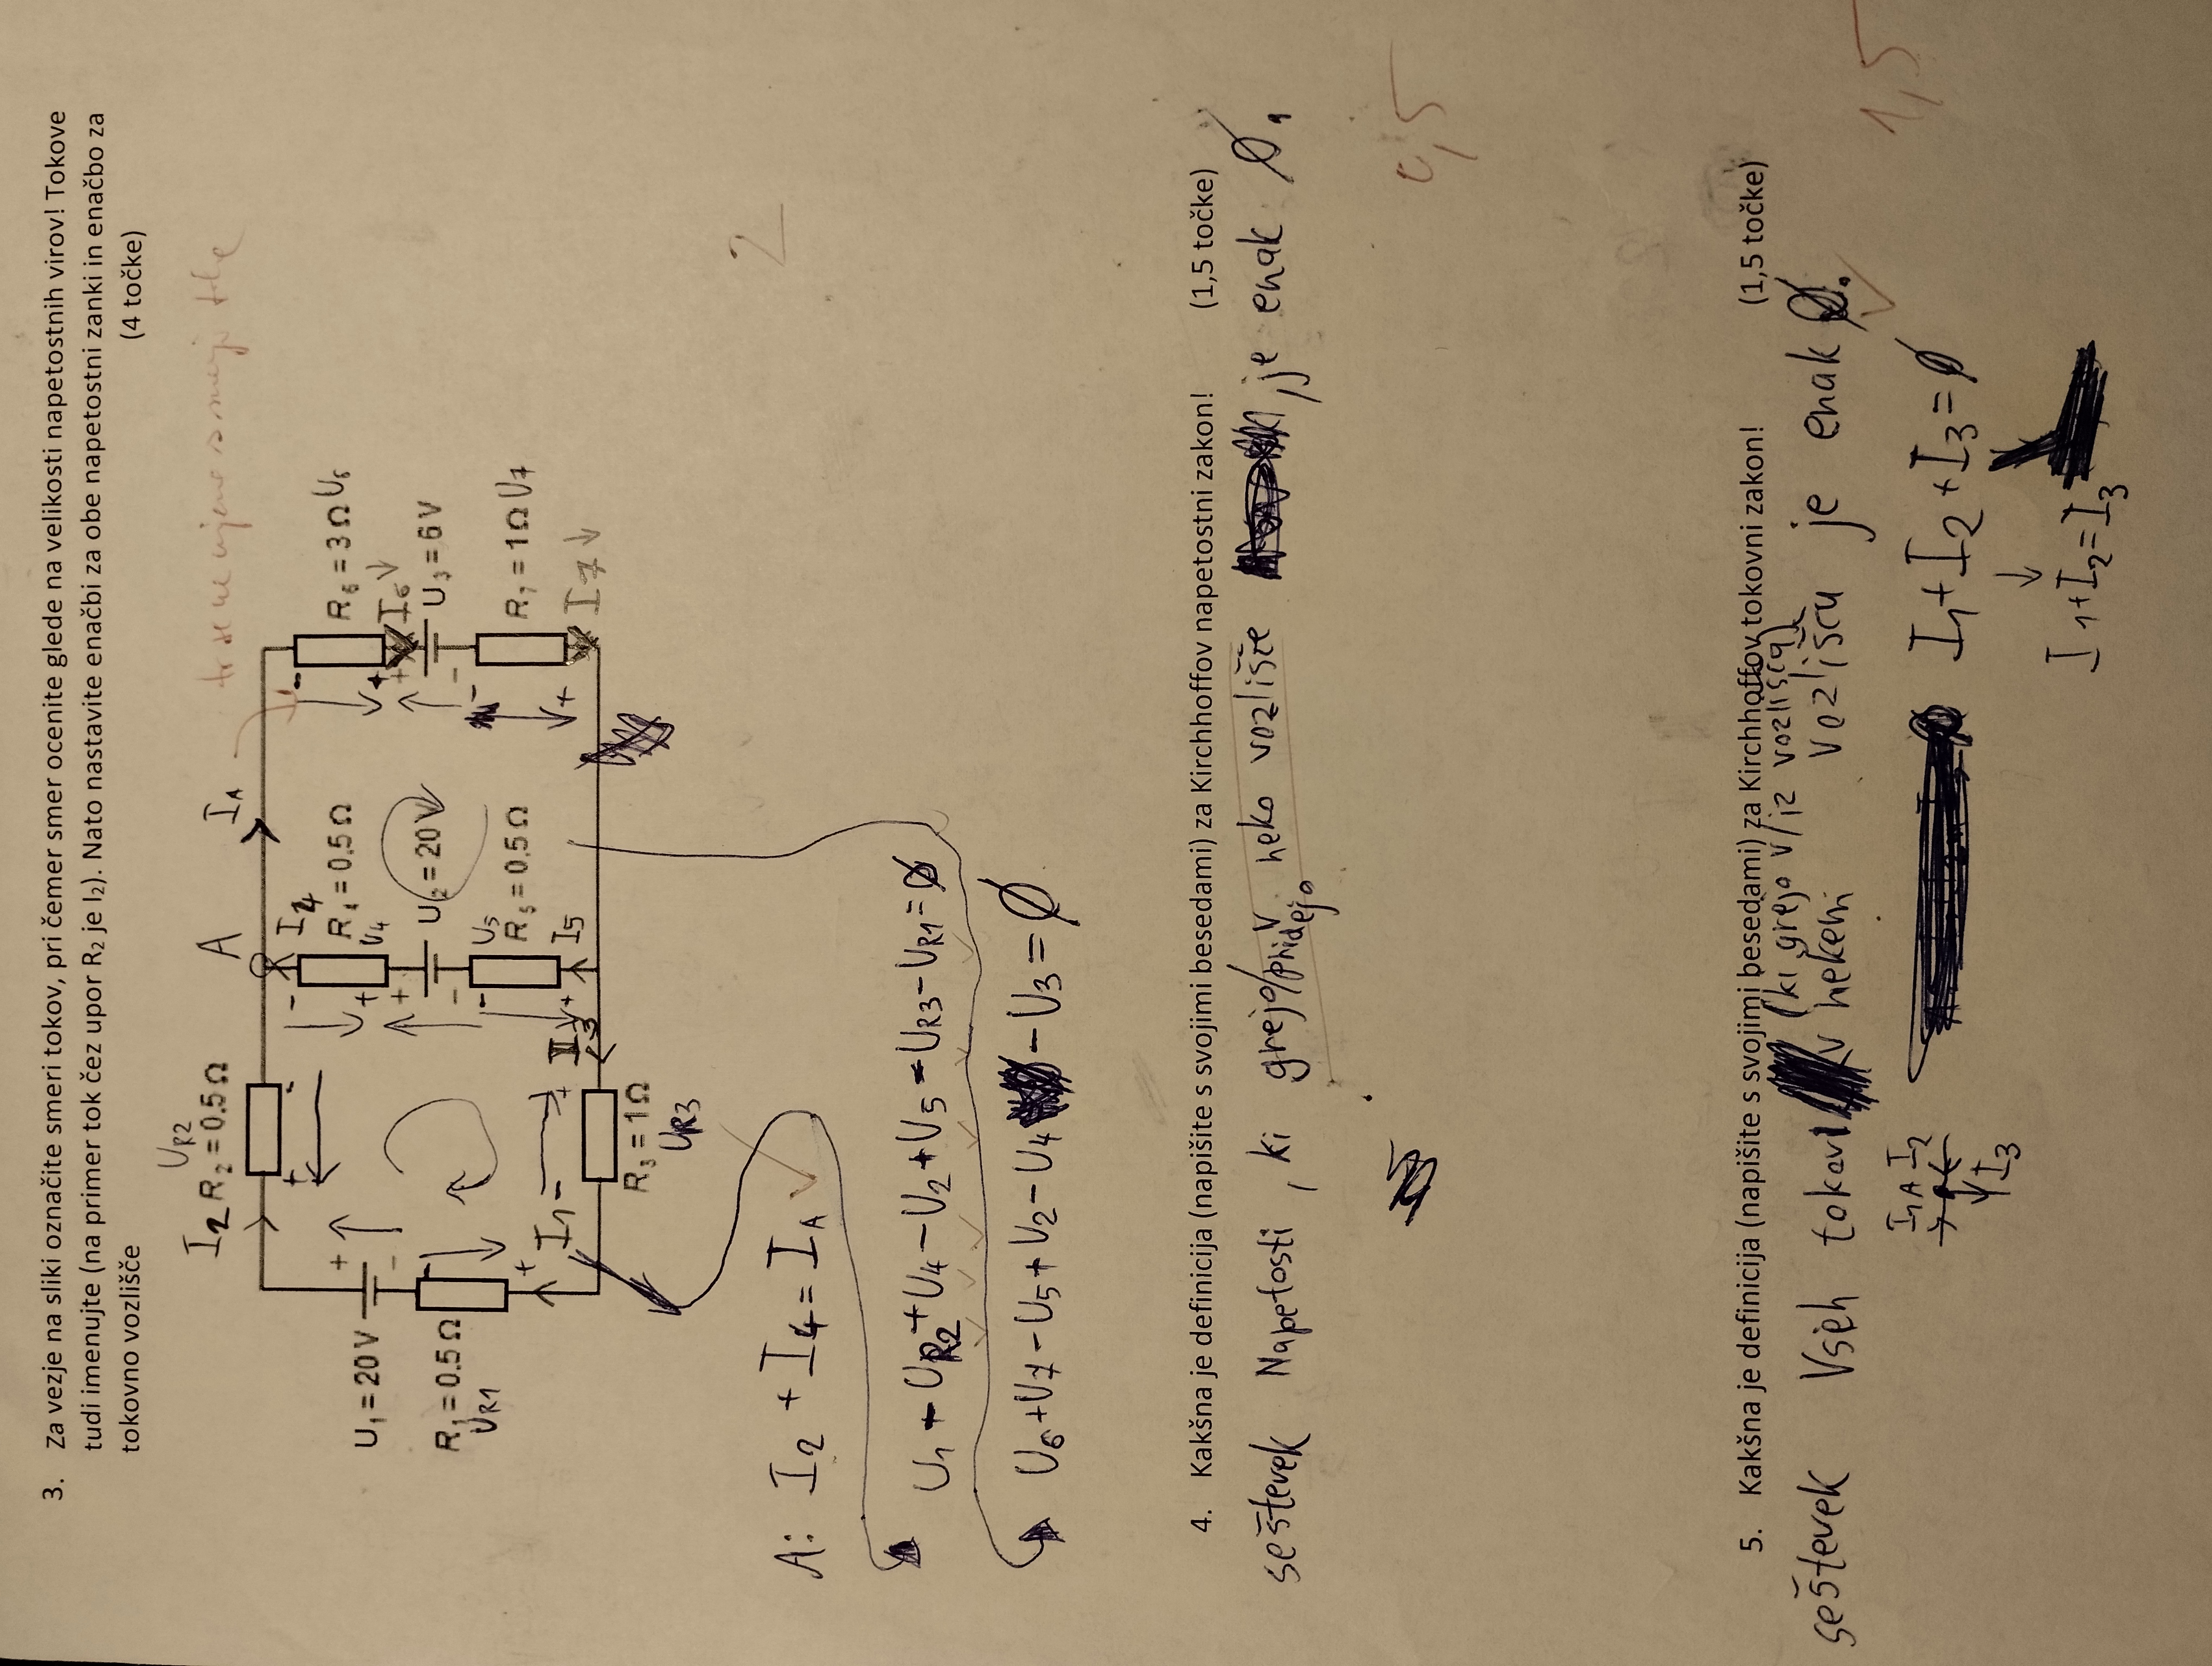 3. Za vezje na sliki označite smeri tokov, pri čemer smer ocenite glede na velikosti napetostnih virov! Tokove
tudi imenujte (na primer tok čez upor R₂ je I₂). Nato nastavite enačbi za obe napetostni zanki in enačbo za
tokovno vozlišče (4 točke)
U_R2
I₂ R₂ = 0.5 Ω A I_A
- I₄ -
+ -
R₄ = 0.5 Ω R₆ = 3 Ω U₆
U₁ = 20 V + + U₄ + I₆ ↓
- + U₂ = 20 V + U₃ = 6 V
R₁ = 0.5 Ω - - -
U_R1 - U₅ -
R₅ = 0.5 Ω R₇ = 1 Ω U₇
+ I₁ - + I₃ + I₅ + I₇ ↓
R₃ = 1 Ω
U_R3
2
A: I₂ + I₄ = I_A ✓
U₁ - U_R2 + U₄ - U₂ + U₅ - U_R3 - U_R1 = Ø
U₆ + U₇ - U₅ + U₂ - U₄ - U₃ = Ø
4. Kakšna je definicija (napišite s svojimi besedami) za Kirchhoffov napetostni zakon! (1,5 točke)
seštevek Napetosti, ki grejo/pridejo v neko vozlišče, je enak Ø.
0,5
5. Kakšna je definicija (napišite s svojimi besedami) za Kirchhoffov tokovni zakon! (1,5 točke)
(ki grejo v/iz vozlišča)
seštevek Vseh tokov v nekem vozlišču je enak Ø.
1,5
I₁ A I₂ I₁ + I₂ + I₃ = Ø
I₃ ↓
I₁ + I₂ = I₃